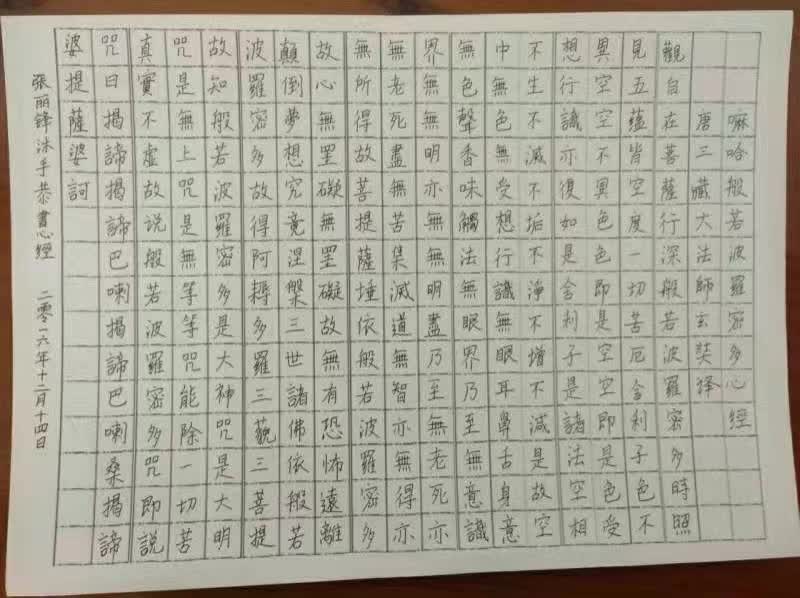 嘛哈般若波羅密多心經
唐三藏大法師玄奘译
觀自在菩薩行深般若波羅密多時照
見五蘊皆空度一切苦厄舍利子色不
異空空不異色色即是空空即是色受
想行識亦復如是舍利子是諸法空相
不生不滅不垢不淨不增不減是故空
中無色無受想行識無眼耳鼻舌身意
無色聲香味觸法無眼界乃至無意識
界無無明亦無無明盡乃至無老死亦
無老死盡無苦集滅道無智亦無得亦
無所得故菩提薩埵依般若波羅密多
故心無罣礙無罣礙故無有恐怖遠離
顛倒夢想究竟涅槃三世諸佛依般若
波羅密多故得阿耨多羅三藐三菩提
故知般若波羅密多是大神咒是大明
咒是無上咒是無等等咒能除一切苦
真實不虛故說般若波羅密多咒即說
咒曰揭諦揭諦巴喇揭諦巴喇桑揭諦
婆提薩婆訶
張丽鋒沐手恭書心經 二零一六年十二月十四日